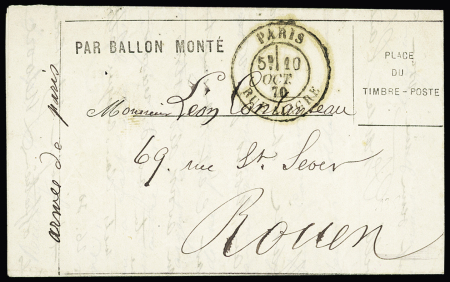 PAR BALLON MONTÉ
PARIS
5E 10
OCT.
70
PLACE
DU
TIMBRE-POSTE
Monsieur Léon
69, rue St. Sever
Rouen
armée de paris